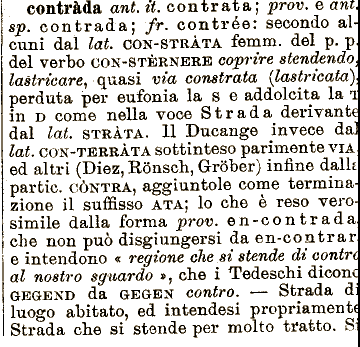 contràda ant. it. contrata; prov. e ant.
sp. contrada; fr. contrée: secondo al-
cuni dal lat. CON-STRÀTA femm. del p. p.
del verbo CON-STÈRNERE coprire stendendo,
lastricare, quasi via constrata (lastricata)
perduta per eufonia la S e addolcita la T
in D come nella voce Strada derivante
dal lat. STRÀTA. Il Ducange invece dal
lat. CON-TERRÀTA sottinteso parimente VIA,
ed altri (Diez, Rönsch, Gröber) infine dalla
partic. CÒNTRA, aggiuntole come termina-
zione il suffisso ATA; lo che è reso vero-
simile dalla forma prov. en-contrada,
che non può disgiungersi da en-contrar,
e intendono « regione che si stende di contro
al nostro sguardo », che i Tedeschi dicono
GEGEND da GEGEN contro. — Strada di
luogo abitato, ed intendesi propriamente
Strada che si stende per molto tratto. Si